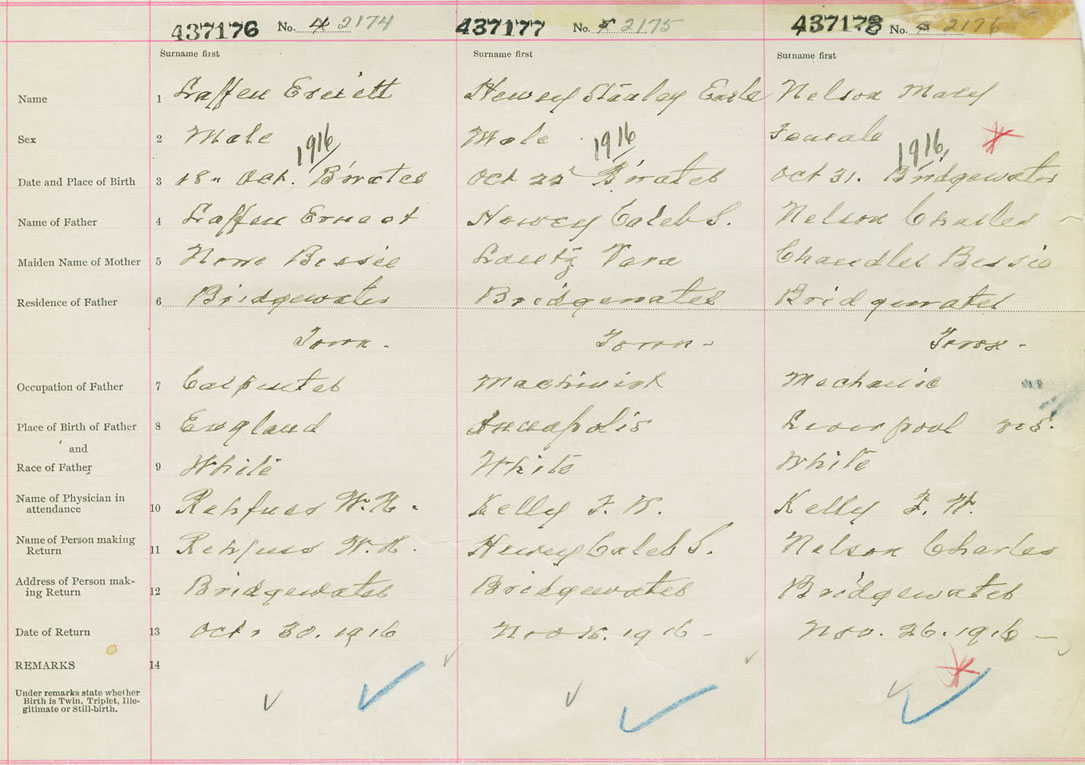 437176 No. 4 2174 437177 No. 5 2175 437178 No. 2176
Surname first Surname first Surname first
Name 1 Laffen Everett Howey Stanley Earle Nelson Mary
Sex 2 Male Male Female
1916 1916 1916
Date and Place of Birth 3 18" Oct. B'water Oct 22 B'water Oct 31. Bridgewater
Name of Father 4 Laffen Ernest Howey Caleb S. Nelson Charles
Maiden Name of Mother 5 Bessie Vera Chandler Bessie
Residence of Father 6 Bridgewater Bridgewater Bridgewater
Town. Town- Town-
Occupation of Father 7 Carpenter Machinist Mechanic
Place of Birth of Father 8 England Annapolis Liverpool N.S.
and
Race of Father 9 White White White
Name of Physician in attendance 10 Rehfuss W.N. Kelly F. W. Kelly F. W.
Name of Person making Return 11 Rehfuss W.N. Howey Caleb S. Nelson Charles
Address of Person making Return 12 Bridgewater Bridgewater Bridgewater
Date of Return 13 Oct, 30. 1916 Nov 1916 - Nov. 26. 1916 -
REMARKS 14
Under remarks state whether
Birth is Twin, Triplet, Ille-
gitimate or Still-birth.